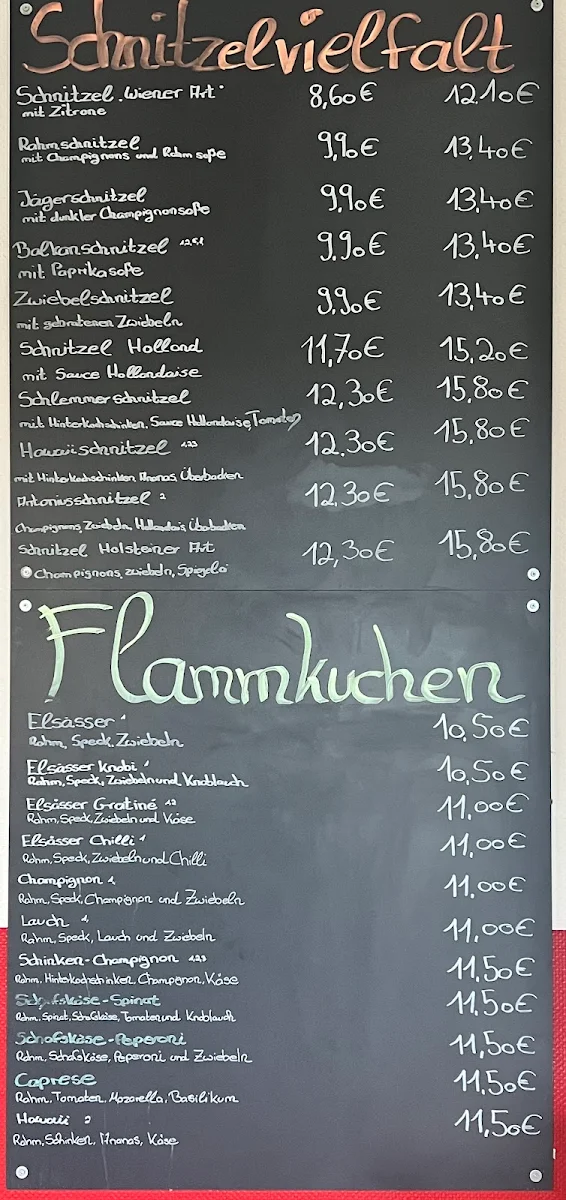 Schnitzelvielfalt
Schnitzel "Wiener Art" 8,60€ 12.10€
mit Zitrone
Rahmschnitzel 9,90€ 13,40€
mit Champignons und Rahm soße
Jägerschnitzel 9,90€ 13,40€
mit dunkler Champignonsoße
Balkanschnitzel 9.90€ 13,40€
mit Paprikasoße
Zwiebelschnitzel 9,90€ 13,40€
mit gebratenen Zwiebeln
Schnitzel Holland 11,70€ 15,20€
mit Sauce Hollandaise
Schlemmerschnitzel 12,30€ 15,80€
mit Hinterkochschinken, Sauce Hollandaise, Tomaten
Hawaiischnitzel 123 12.30€ 15,80€
mit Hinterkochschinken, Ananas, Überbacken
Antoniusschnitzel 2 12,30€ 15,80€
Champignons, Zwiebeln, Hollandais Überbacken
Schnitzel Holsteiner Art 12,30€ 15,80€
Champignons, zwiebeln, Spiegelei
Flammkuchen
Elsässer 1 10,50€
Rahm, Speck, Zwiebeln
Elsässer Knobi 1 10,50€
Rahm, Speck, Zwiebeln und Knoblauch
Elsässer Gratiné 11,00€
Rahm, Speck, Zwiebeln und Käse
Elsässer Chilli 1 11,00€
Rahm, Speck, Zwiebeln und Chilli
Champignon 1 11,00€
Rahm, Speck, Champignon und Zwiebeln
Lauch 1 11,00€
Rahm, Speck, Lauch und Zwiebeln
Schinken-Champignon 123 11,50€
Rahm, Hinterkochschinken, Champignon, Käse
Schafskäse-Spinat 11,50€
Rahm, Spinat, Schafskäse, Tomaten und Knoblauch
Schafskäse-Peperoni 11,50€
Rahm, Schafskäse, Peperoni und Zwiebeln
Caprese 11,50€
Rahm, Tomaten, Mozarella, Basilikum
Hawaii 2 11,50€
Rahm, Schinken, Ananas, Käse